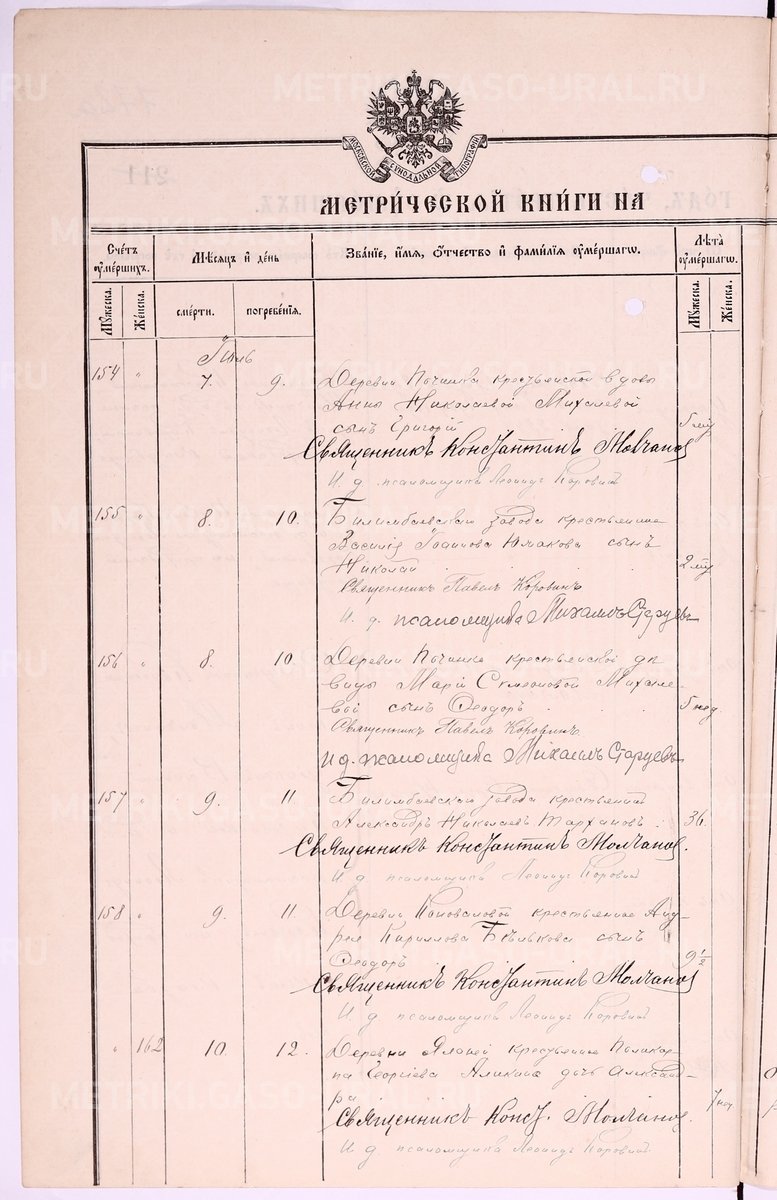 METRIKI.GASO-URAL.RU
МОСКОВСКОЙ СѴНОДАЛЬНОЙ ТИПОГРАФІИ
МЕТРИ́ЧЕСКОЙ КНИ́ГИ НА
Сче́тъ ᲂу҆ме́ршихъ.
Мѣ́сяцъ и҆ де́нь
Зва́нїе, и҆́мя, ѻ҆́тчество и҆ фами́лїя ᲂу҆ме́ршагѡ.
Лѣ́та ᲂу҆ме́ршагѡ.
Мꙋ́жеска.
Же́нска.
сме́рти.
погребе́нїя.
Мꙋ́жеска.
Же́нска.
Іюль
154 " 7. 9. Деревни Починка крестьянской вдовы
Анны Николаевой Михалевой
сынъ Григорій 5
Священникъ Константинъ Молчановъ
И. д. псаломщика Леонидъ Коровинъ
155 " 8. 10. Билимбаевскаго завода крестьянина
Василія Іванова Юмакова сынъ
Николай 2
Священникъ Павелъ Коровинъ
И. д. псаломщика Михаилъ Старцевъ
156 " 8. 10. Деревни Починка крестьянской
Маріи Симеоновой Михале-
вой сынъ Ѳеодоръ 5 нед
Священникъ Павелъ Коровинъ
И д. псаломщика Михаилъ Старцевъ
157 " 9. 11. Билимбаевскаго завода крестьянинъ
Александръ Николаевъ 36.
Священникъ Константинъ Молчановъ.
И д. псаломщика Леонидъ Коровинъ
158 " 9. 11. Деревни Коноваловой крестьянина Анд-
рея Кириллова сынъ
Ѳеодоръ 9 1/2
Священникъ Константинъ Молчановъ
И д. псаломщика Леонидъ Коровинъ
" 162 10. 12. Деревни крестьянина Поликар-
па Георгіева Аликина дочь Александ-
ра 7
Священникъ Конст. Молчановъ.
И д. псаломщика Леонидъ Коровинъ